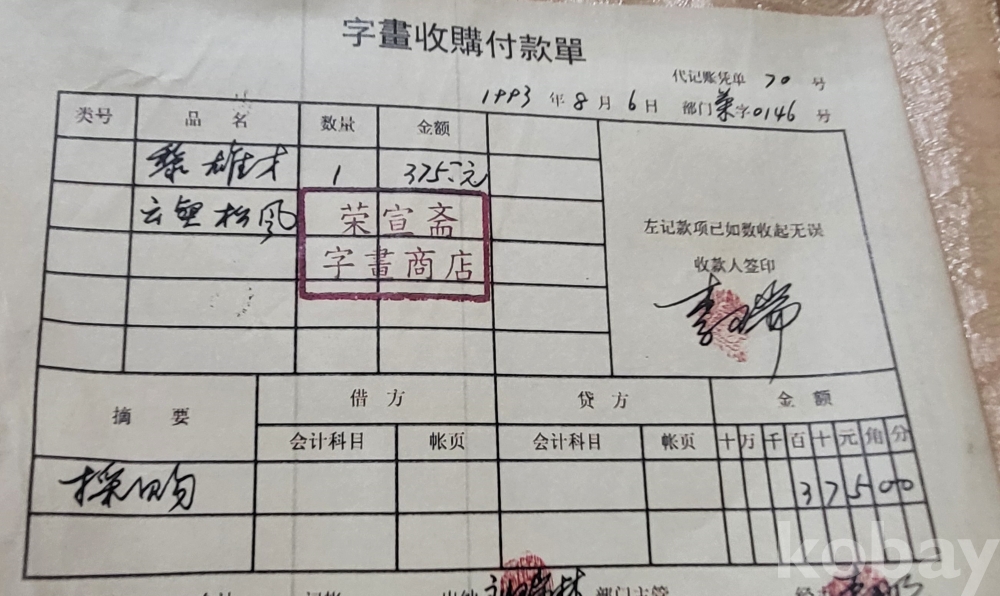 字畫收購付款單
代记账凭单 70 号
1993 年 8 月 6 日 部门 荣字0146 号
类号 品名 数量 金额
黎雄才 1 375.元
云壑松风
荣宣斋
字畫商店
左记款项已如数收起无误
收款人签印
摘要 借方 贷方 金额
会计科目 帐页 会计科目 帐页 十 万 千 百 十 元 角 分
採购 3 7 5 0 0
部门主管
kobay